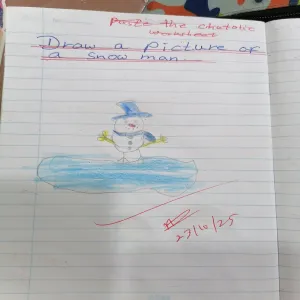 Paste the
worksheet
Draw a picture of
a snow man.
23/6/25